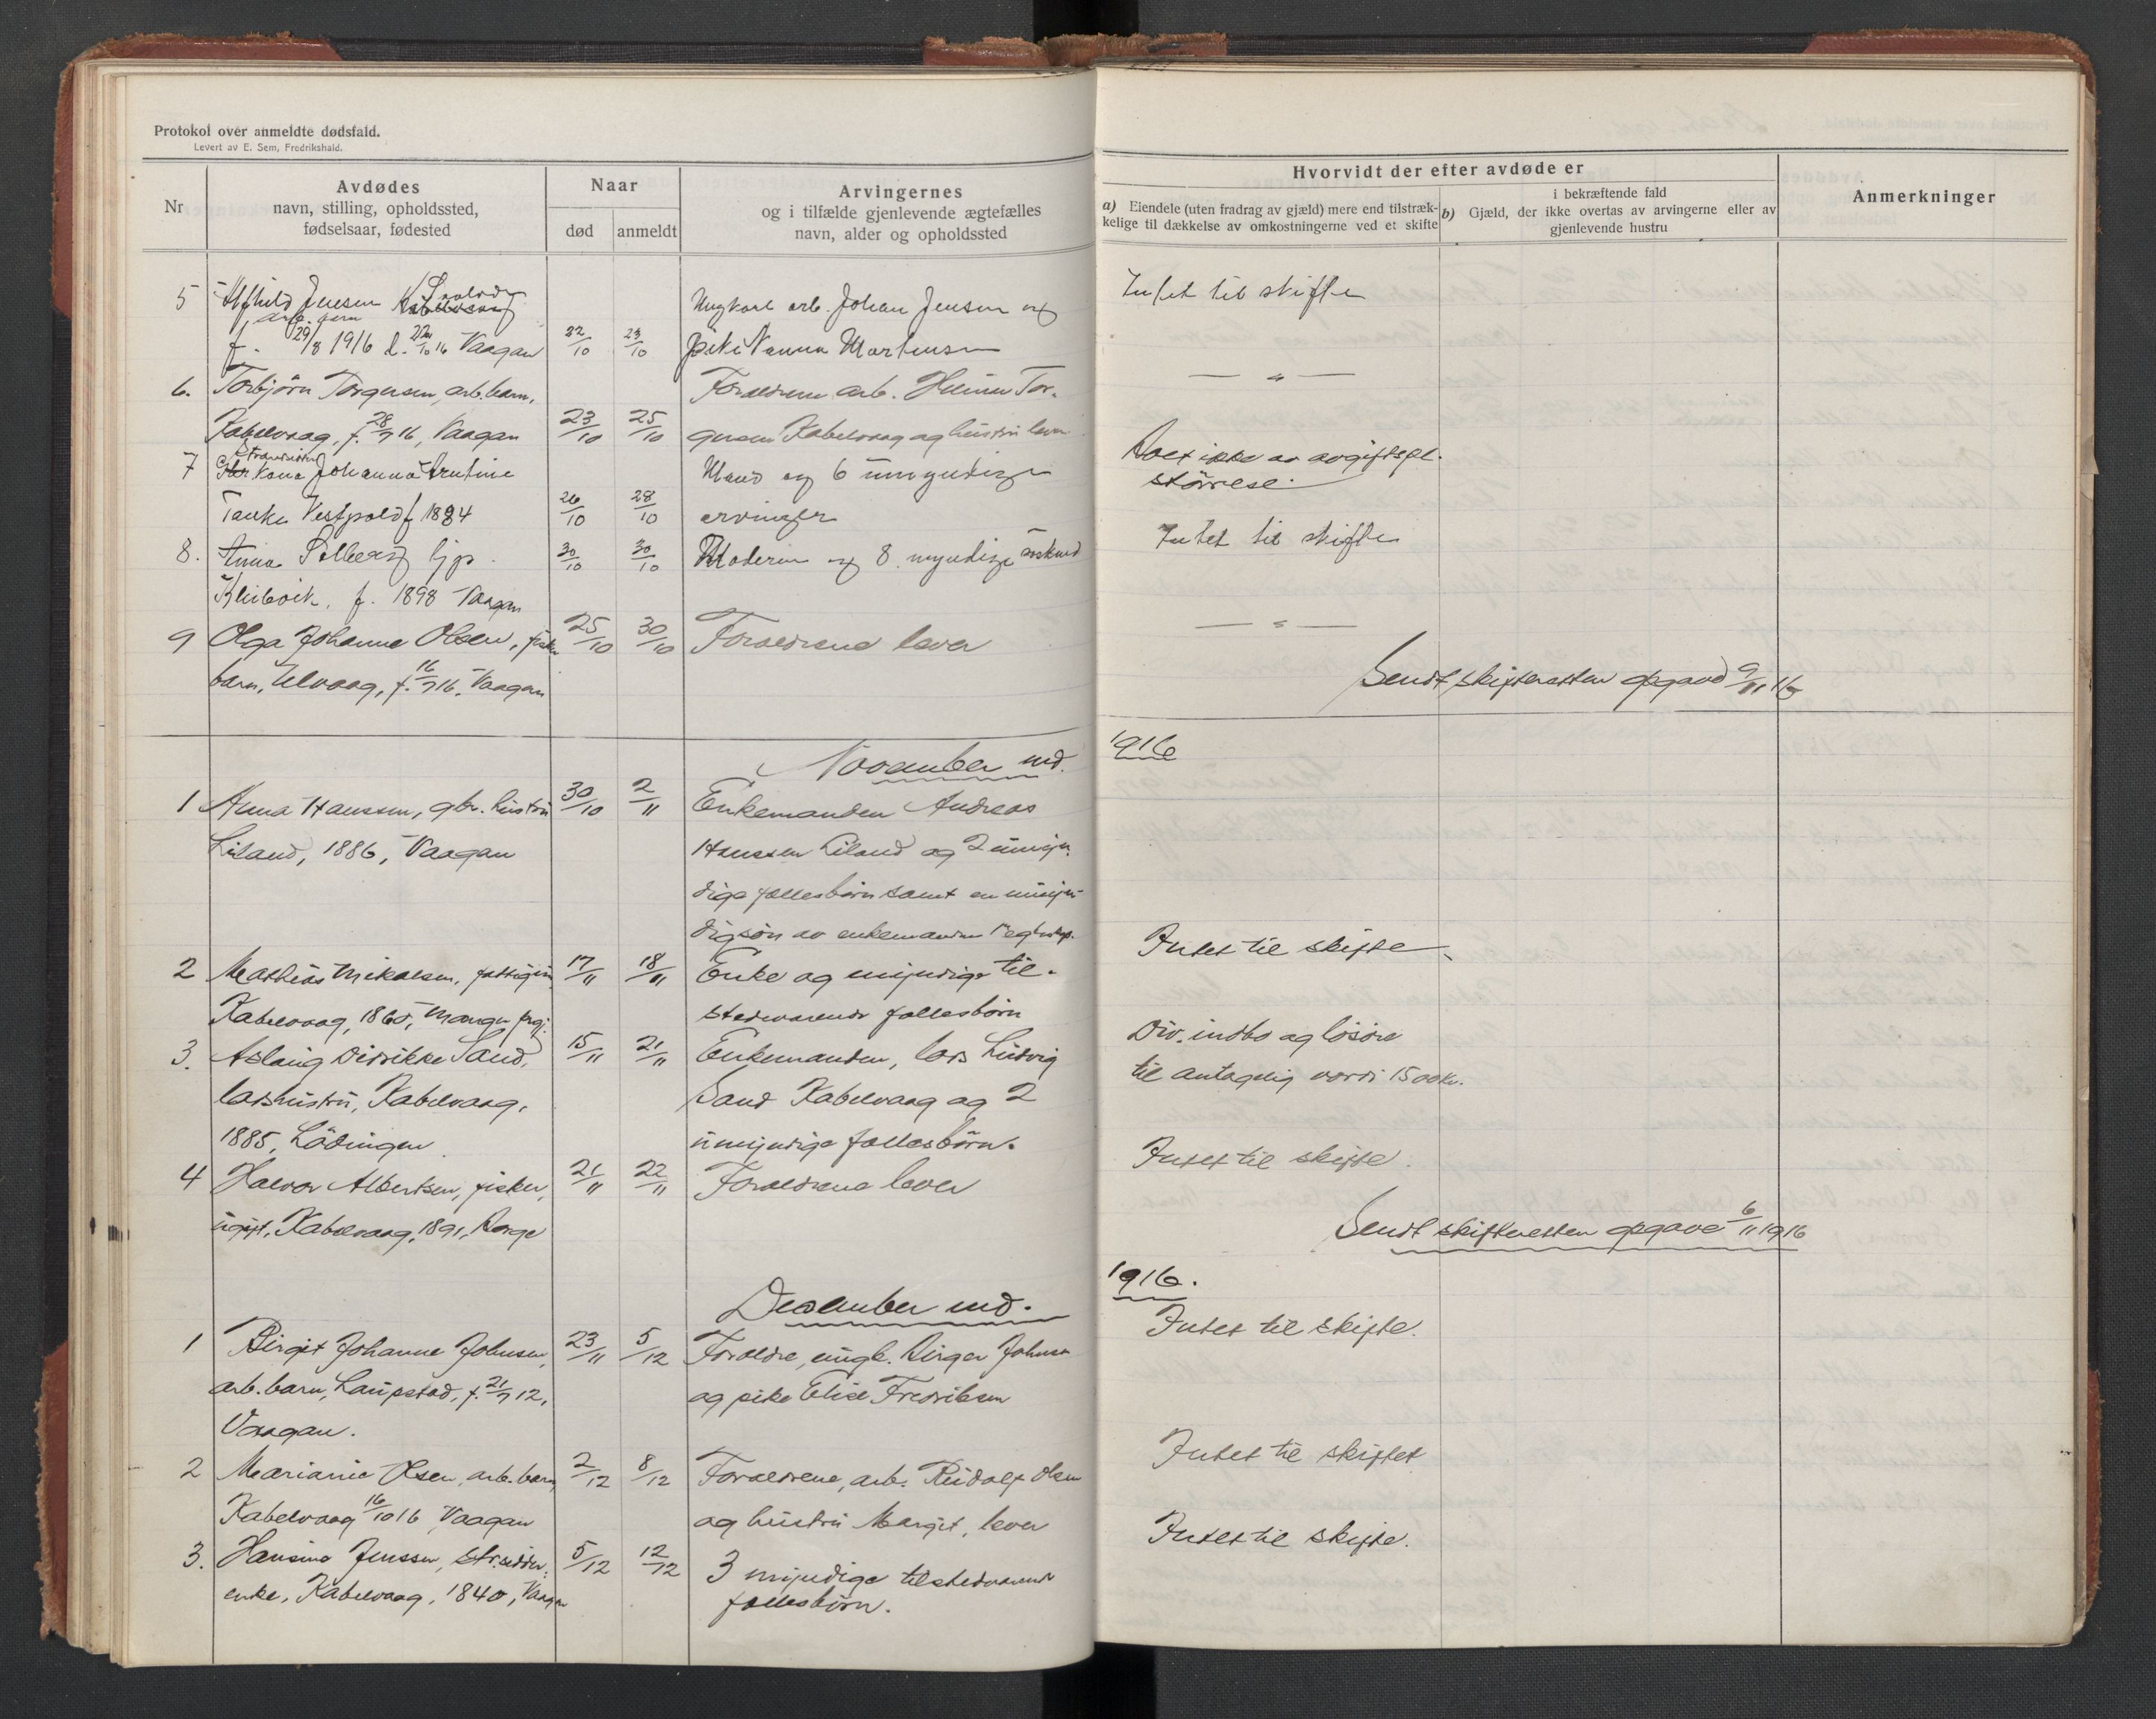 Protokol over anmeldte dødsfald.
Levert av E. Sem, Fredrikshald.
Nr
Avdødes
navn, stilling, opholdssted,
fødselsaar, fødested
Naar
død
anmeldt
Arvingernes
og i tilfælde gjenlevende ægtefælles
navn, alder og opholdssted
Hvorvidt der efter avdøde er
a) Eiendele (uten fradrag av gjæld) mere end tilstræk-
kelige til dækkelse av omkostningerne ved et skifte
i bekræftende fald
b) Gjæld, der ikke overtas av arvingerne eller av
gjenlevende hustru
Anmerkninger
5 Alfhild Jensen
Ungkarl arb. Johan Jensen og
Intet til skifte
f. 29/8 1916 d. 22/10 16 Vaagan 22/10 23/10 pike Nanna Martensen
6. Torbjörn Torgersen, arb. barn,
Forældrene arb. Helmer Tor-
— " —
Kabelvaag, f. 28/7 16, Vaagan 23/10 25/10 gersen Kabelvaag og hustru lever
7 Kona Johanna
Mand og 6 umyndige
Boet ikke av avgiftspl.
störrelse.
Vestpold f 1884 26/10 28/10 arvinger
8. Anna Solberg 30/10 30/10 Moderen og 8 myndige søskend
Intet til skifte
f. 1898 Vaagan
9 Olga Johanne Olsen, fisker 25/10 30/10 Forældrene lever
— " —
barn, Ulvaag, f. 16/7 16, Vaagan
Sendt skifteretten opgave 9/11 16
November md.
1916
1 Anna Hanssen, gbr. hustru 30/10 2/11 Enkemanden Andreas
Liland, 1886, Vaagan
Hanssen Liland og 2 umyn-
dige fællesbörn samt en umyn-
dig sön av enkemanden
2 Mathias Mikalsen, 17/11 18/11 Enke og myndige til-
Intet til skifte
Kabelvaag, 1860, Manger prgj.
stedeværende fællesbörn
3. Aslaug Didrikke Sand, 15/11 21/11 Enkemanden, lods Ludvig
Div. indbo og lösöre
til antagelig værdi 1500 kr.
lodshustru, Kabelvaag,
Sand Kabelvaag og 2
1885, Lödingen
umyndige fællesbörn.
4 Halvor Albertsen, fisker, 21/11 22/11 Forældrene lever
Intet til skifte.
ugift, Kabelvaag, 1891,
Sendt skifteretten opgave 6/11 1916
Desember md.
1916.
1 Birgit Johanne Johnsen, 23/11 5/12 Forældre, ungk. Birger Johnsen
Intet til skifte.
arb. barn, Laupstad, f. 21/7 12,
og pike Elise Fredriksen
Vaagan.
2 Marianne Olsen, arb. barn, 2/12 8/12 Forældrene, arb. Rudolf Olsen
Intet til skiftet
Kabelvaag 16/10 16 Vaagan
og hustru Margit, lever
3. Hansine Jenssen, str.sidder- 5/12 12/12 3 myndige tilstedeværende
Intet til skifte.
enke, Kabelvaag, 1840, Vaagan
fællesbörn.